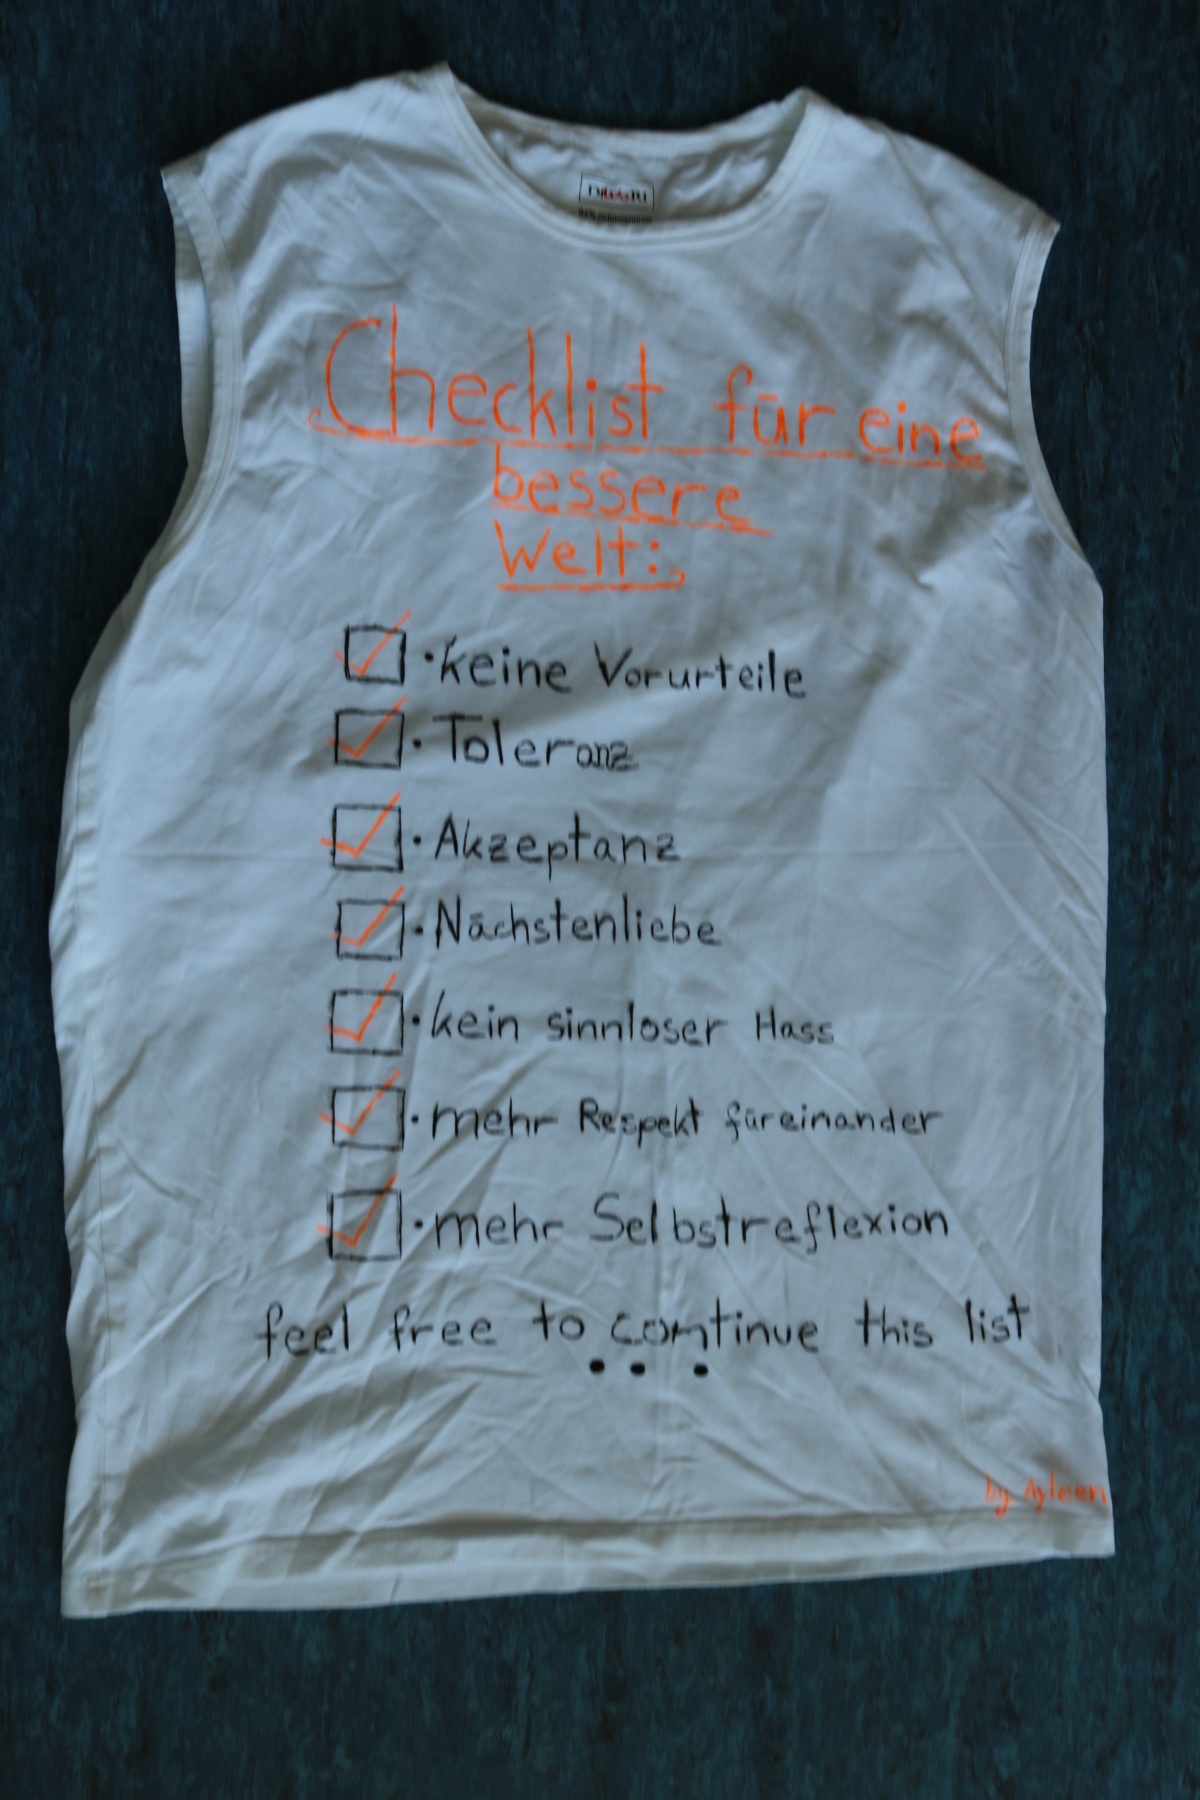 Checklist für eine
bessere
Welt:
• keine Vorurteile
• Toleranz
• Akzeptanz
• Nächstenliebe
• kein sinnloser Hass
• mehr Respekt füreinander
• mehr Selbstreflexion
feel free to continue this list
...
by Ayleen